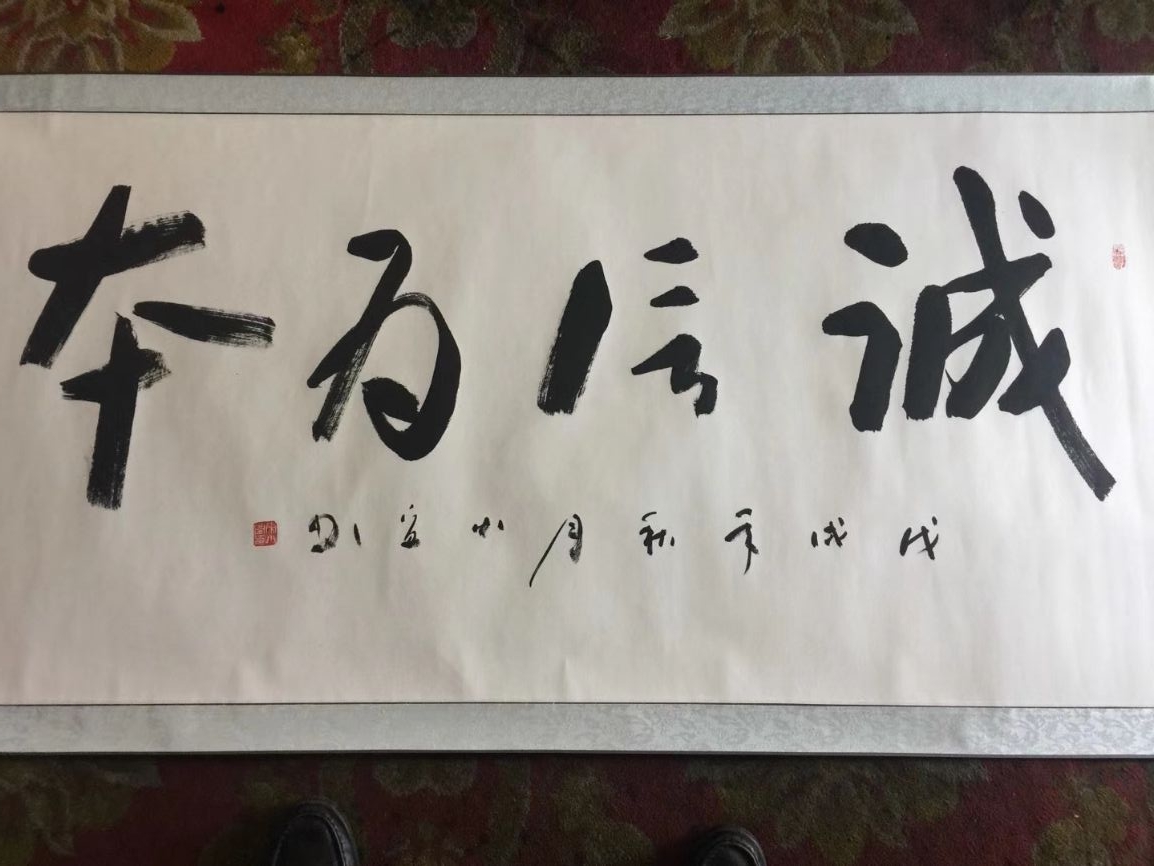 诚信为本
戊戌年秋月